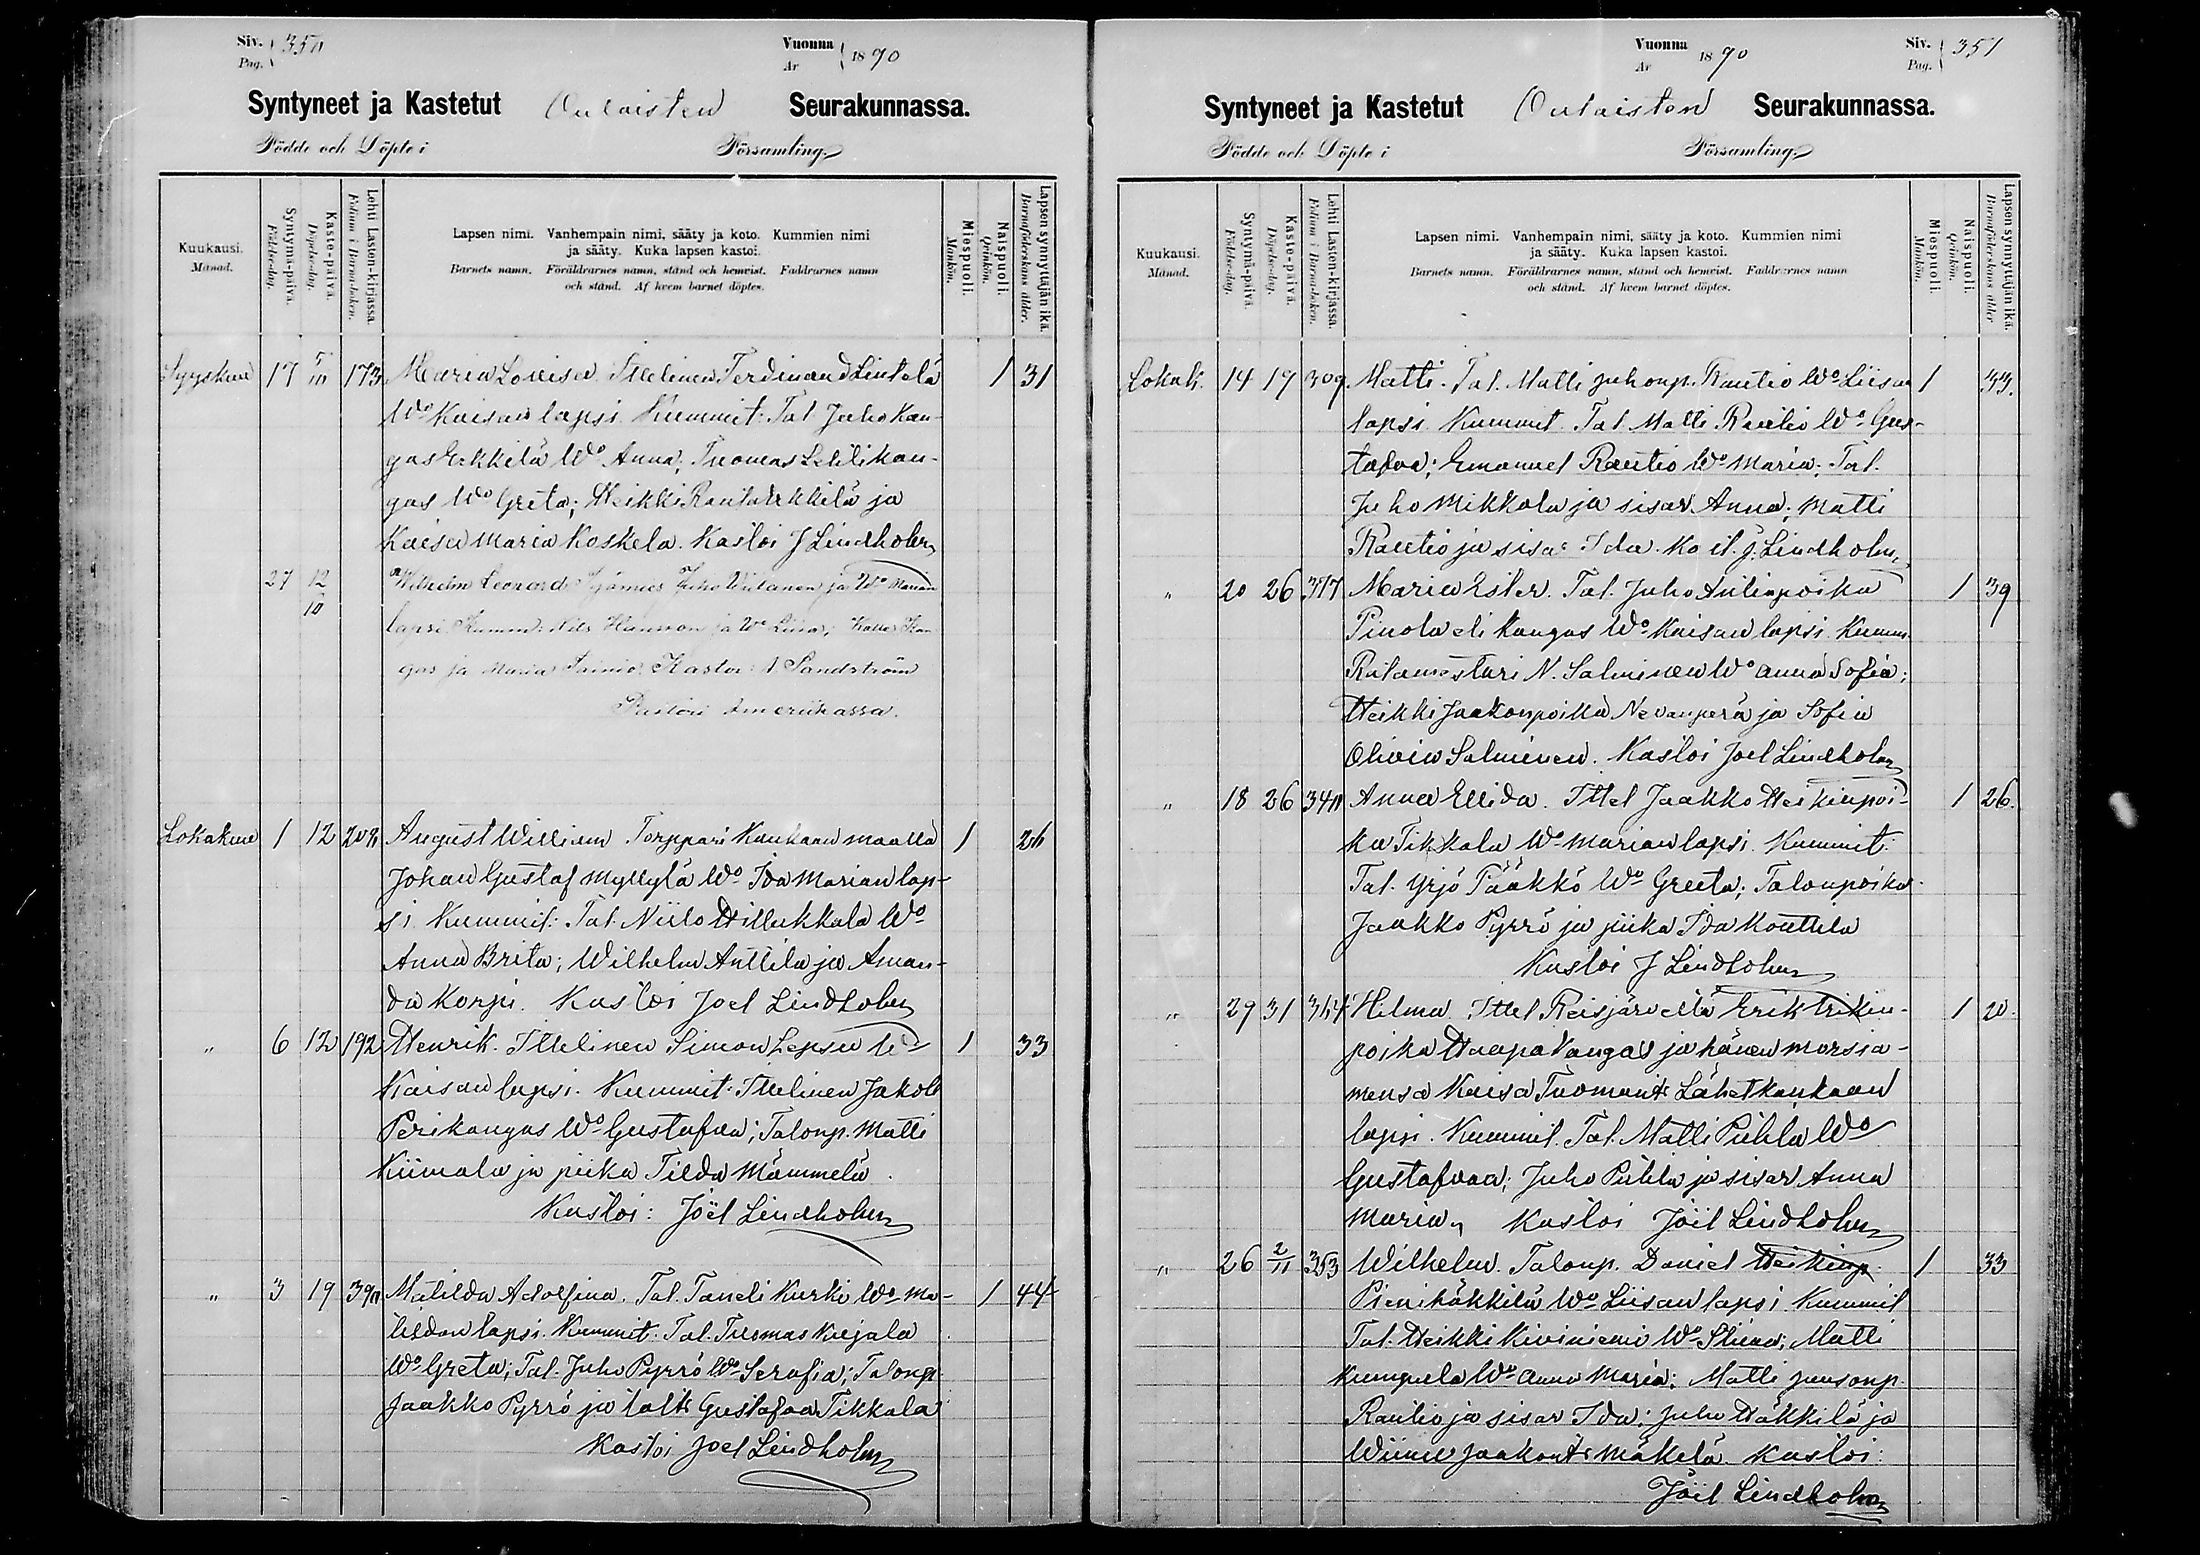 Siv. 350 Vuonna 1890
Pag. År
Syntyneet ja Kastetut Oulaisten Seurakunnassa.
Födde och Döpte i Församling.
Kuukausi. Månad.
Syntymä-päivä. Födelse-dag.
Kaste-päivä. Döpelse-dag.
Lehti Lasten-kirjassa. Folium i Barnaboken.
Lapsen nimi. Vanhempain nimi, sääty ja koto. Kummien nimi
ja sääty. Kuka lapsen kastoi.
Barnets namn. Föräldrarnes namn, stånd och hemvist. Faddrarnes namn
och stånd. Af hvem barnet döptes.
Miespuoli. Mankön.
Naispuoli. Qvinkön.
Lapsen synnyttäjän ikä. Barnaföderskans ålder.
Syyskuu 17 5/10 173 Maria Lovisa. Ittelinen Ferdinand Lintala 1 31
Wo Kaisan lapsi. Kummit: Tal. Juho Kan-
gas Erkkilä Wo Anna; Tuomas Lehtikan-
gas Wo Greta; Heikki Rautaerkkilä ja
Kaisa Maria Koskela. Kastoi J Lindholm
27 12/10 Wilhelm Leonard Juho ja Wo Marian
lapsi Kumm: Nils ja Wo Liina; Kalle Kan
gas ja Maria Tainio. Kastoi N Sandström
Pastori Amerikassa.
Lokakuu 1 12 208 August William Torppari Kankaan maalla 1 26
Johan Gustaf Myllylä Wo Ida Marian lap-
si Kummit: Tal. Niilo Hillukkala Wo
Anna Brita; Wilhelm Anttila ja Aman-
da Korpi. Kastoi Joel Lindholm
" 6 12 192 Henrik. Ittelinen Simon Lepsu Wo 1 33
Kaisan lapsi. Kummit: Ittelinen Jakob
Perikangas Wo Gustafva; Talonp. Matti
Kiimala ja piika Tilda Mämmelä.
Kastoi: Joël Lindholm
" 3 19 390 Matilda Adolfina. Tal. Taneli Kurki Wo Ma- 1 44
tildan lapsi. Kummit. Tal. Tuomas Kujala
Wo Greta; Tal. Juho Pyrrö Wo Serafia; Talonp.
Jaakko Pyrrö ja talt. Gustafva Tikkala
Kastoi Joel Lindholm
Vuonna 1890 Siv. 351
År Pag.
Syntyneet ja Kastetut Oulaisten Seurakunnassa.
Födde och Döpte i Församling.
Kuukausi. Månad.
Syntymä-päivä. Födelse-dag.
Kaste-päivä. Döpelse-dag.
Lehti Lasten-kirjassa. Folium i Barnaboken.
Lapsen nimi. Vanhempain nimi, sääty ja koto. Kummien nimi
ja sääty. Kuka lapsen kastoi.
Barnets namn. Föräldrarnes namn, stånd och hemvist. Faddrarnes namn
och stånd. Af hvem barnet döptes.
Miespuoli. Mankön.
Naispuoli. Qvinkön.
Lapsen synnyttäjän ikä. Barnaföderskans ålder
Lokak. 14 19 309 Matti. Tal. Matti Juhonp. Rautio Wo Liisan 1 33.
lapsi. Kummit. Tal. Matti Rautio Wo Gus-
tafva; Emanuel Rautio Wo Maria; Tal.
Juho Mikkola ja sisar Anna; Matti
Rautio ja sisar Ida. J. Lindholm
" 20 26 377 Maria Ester. Tal. Juho Antinpoika 1 39
Pinola eli Kangas Wo Kaisan lapsi. Kumm.
Ratamestari N. Salminen Wo Anna Sofia;
Heikki Jaakonpoika Nevanperä ja Sofia
Olivia Salminen. Kastoi Joel Lindholm
" 18 26 340 Anna Ellida. Ittel Jaakko Heikinpoi- 1 26.
ka Tikkala Wo Marian lapsi. Kummit:
Tal. Yrjö Pääkkö Wo Greeta; Talonpoika
Jaakko Pyrrö ja piika Ida Kouttela
Kastoi J Lindholm
" 29 31 364 Hilma. Ittel Reisjärveltä Erik Erikin- 1 20.
poika Haapakangas ja hänen morsia-
mensa Kaisa Tuomant Lähetkankaan
lapsi. Kummit. Tal. Matti Pihla Wo
Gustafvaa; Juho Pihla ja sisar Anna
Maria, Kastoi Joël Lindholm
" 26 2/11 353 Wilhelm. Talonp. Daniel Heikinp. 1 33
Pienihäkkilä Wo Liisan lapsi. Kummit
Tal. Heikki Kiviniemi Wo Stiina; Matti
Kumpula Wo Anna Maria; Matti Juhonp.
Rautio ja sisar Ida; Juho Häkkilä ja
Wiinu Jaakont Mäkelä. Kastoi:
Joël Lindholm